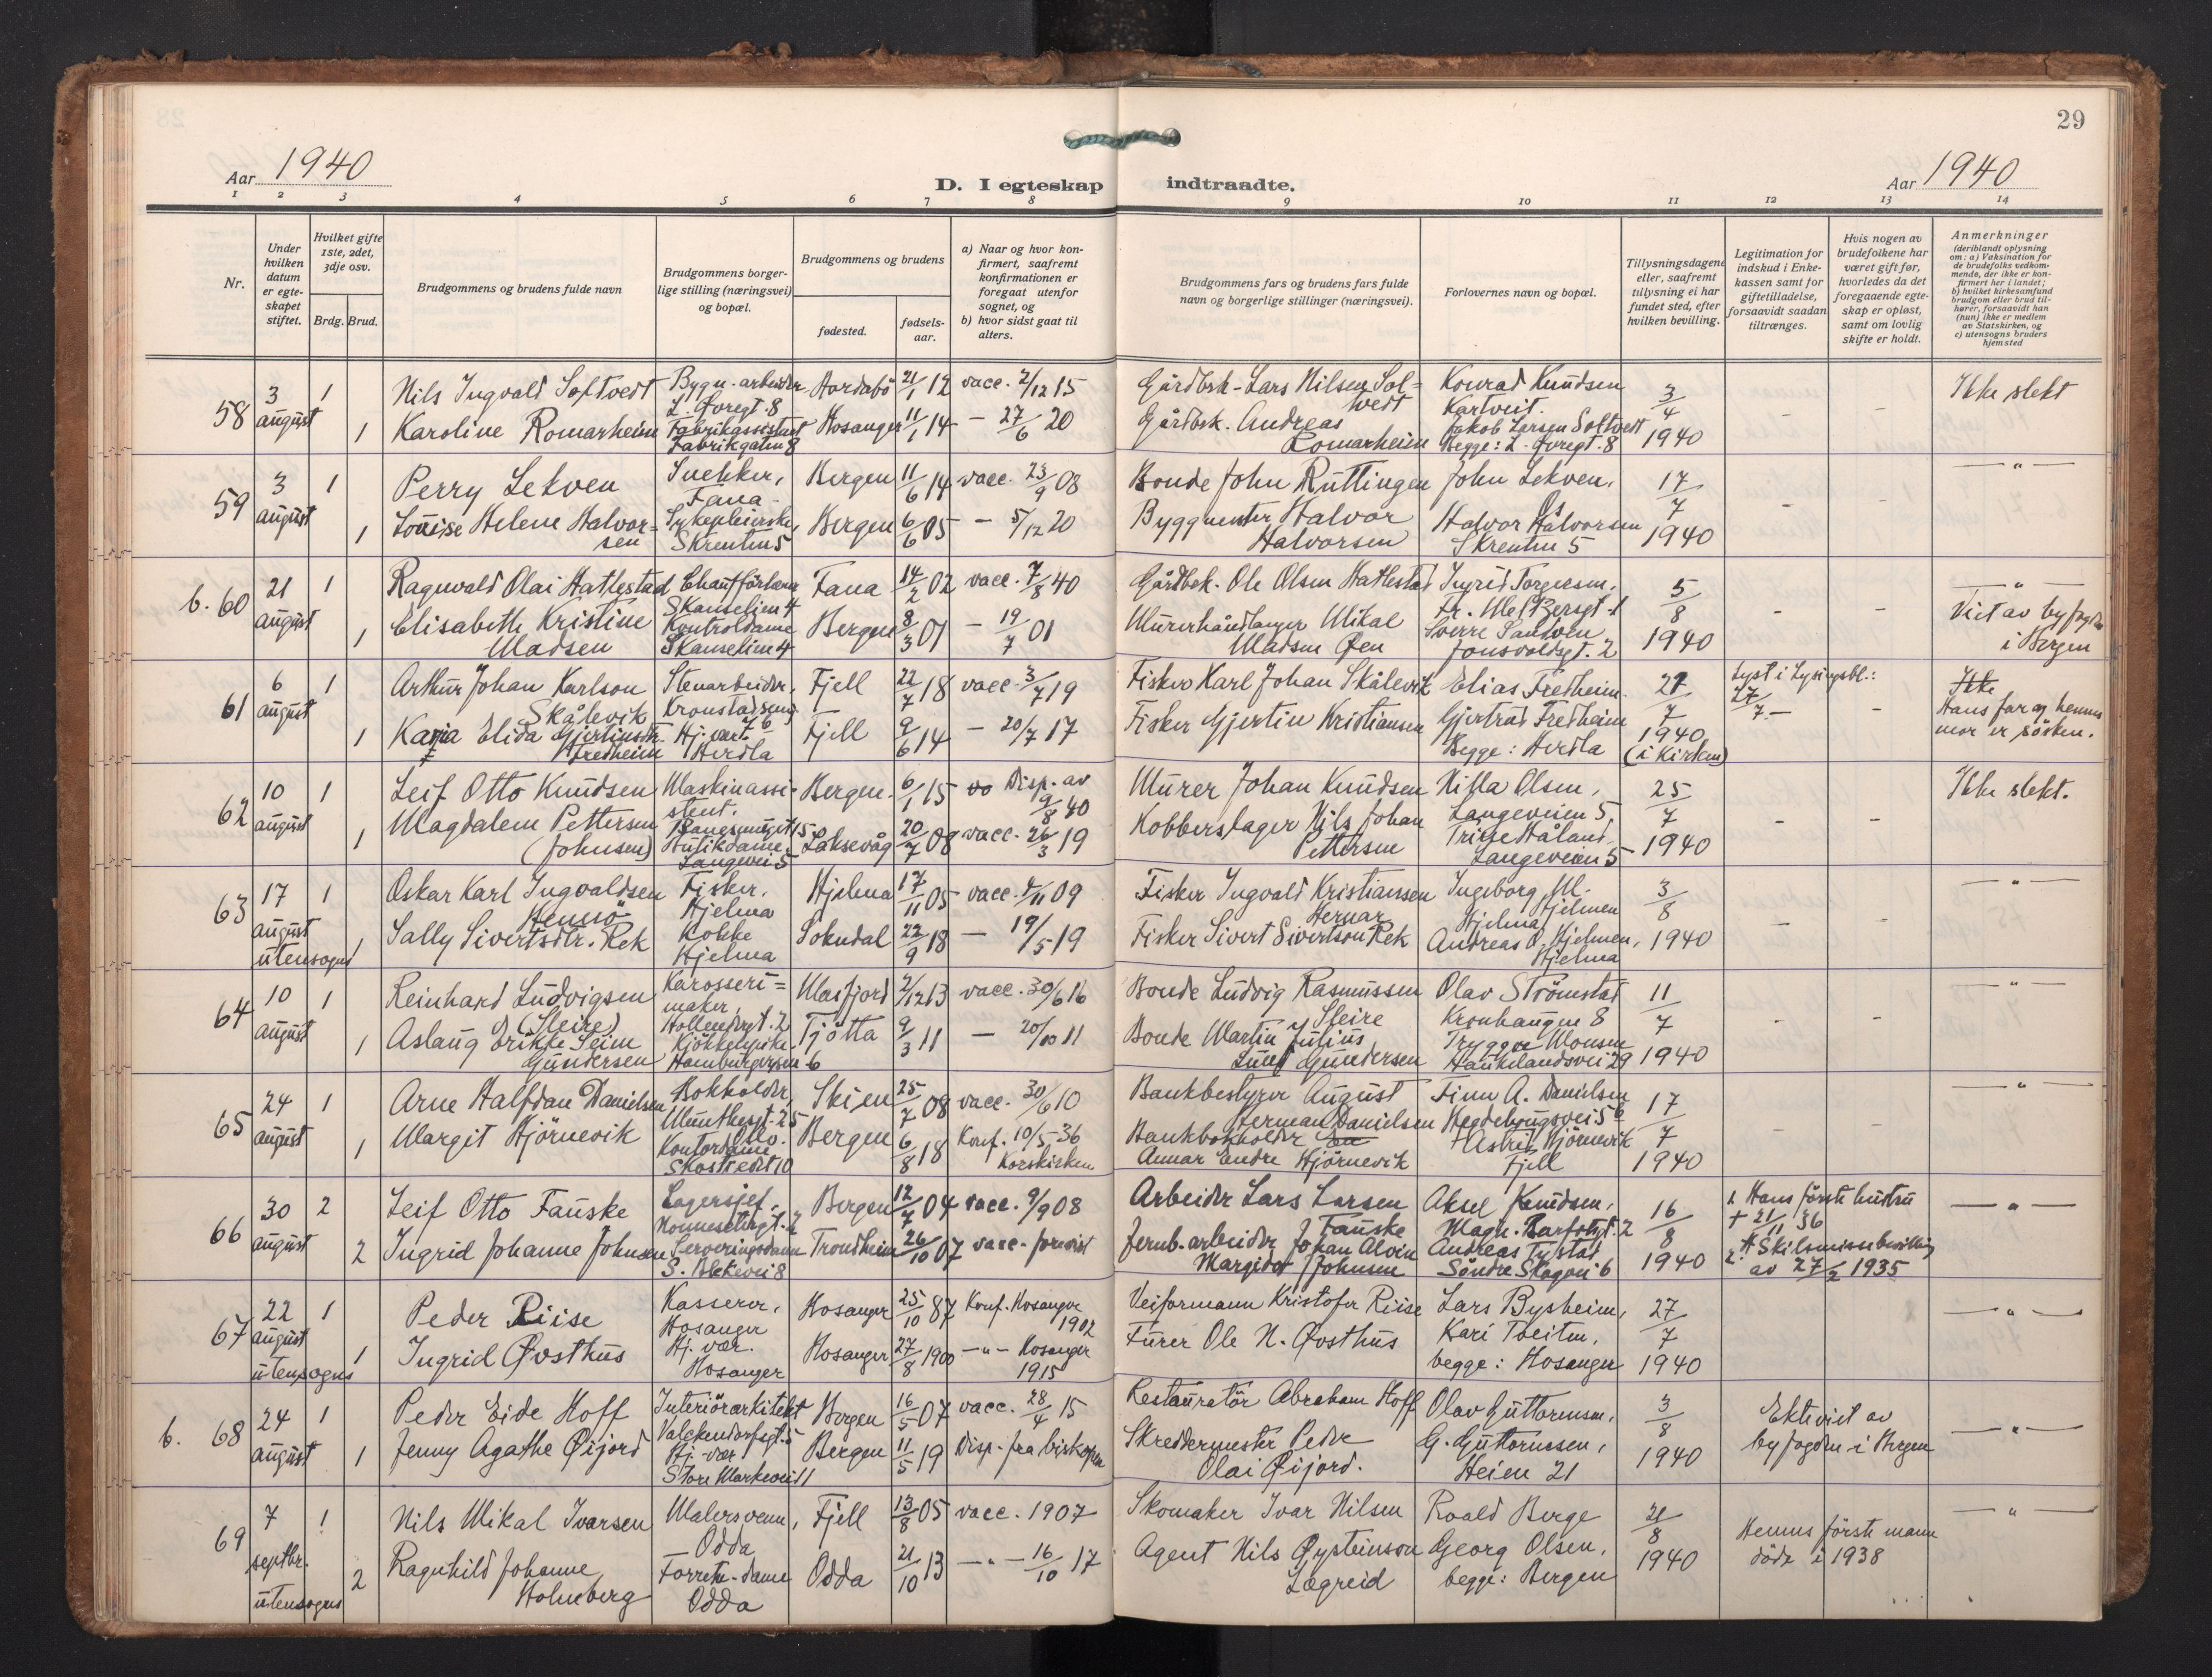 29
Aar 1940
D. Iegteskap indtraadte.
Aar 1940
1 2 3 4 5 6 7 8 9 10 11 12 13 14
Nr.
Under hvilken datum er egte-skapet stiftet.
Hvilket gifte 1ste, 2det, 3dje osv.
Brdg. Brud.
Brudgommens og brudens fulde navn
Brudgommens borger-
lige stilling (næringsvei)
og bopæl.
Brudgommens og brudens
fødested.
fødsels-
aar.
a) Naar og hvor kon-
firmert, saafremt
konfirmationen er
foregaat utenfor
sognet, og
b) hvor sidst gaat til
alters.
Brudgommens fars og brudens fars fulde
navn og borgerlige stillinger (næringsvei).
Forlovernes navn og bopæl.
Tillysningsdagene
eller, saafremt
tillysning ei har
fundet sted, efter
hvilken bevilling.
Legitimation for
indskud i Enke-
kassen samt for
giftetilladelse,
forsaavidt saadan
tiltrænges.
Hvis nogen av
brudefolkene har
været gift før,
hvorledes da det
foregaaende egte-
skap er opløst,
samt om lovlig
skifte er holdt.
Anmerkninger
(deriblandt oplysning
om: a) Vaksination for
de brudefolks vedkom-
mende, der ikke er kon-
firmert her i landet;
b) hvilket kirkesamfund
brudgom eller brud til-
hører, forsaavidt han
(hun) ikke er medlem
av Statskirken, og
c) utensogns bruders
hjemsted
58 3 august 1 Nils Ingvald Softvedt Bygn.arbeider L. Øvregt. 8 Hordabö 21/1 12 vacc. 2/12 15 Gårdbrk. Lars Nilsen Sol=tvedt Konrad Knudsen Kartveit. 3/4 1940 Ikke slekt
1 Karoline Romarheim Fabrikassistent Fabrikgaten 8 Hosanger 11/1 14 - 27/6 20 Gårdbrk. Andreas Romarheim Jakob Larsen Soltvedt Begge: L. Øvregt. 8
59 3 august 1 Perry Lekven Snekker, Fana Bergen 11/6 14 vacc. 23/9 08 Bonde John Rüttingen John Lekven, Os 17/7 1940 - " -
1 Louise Helene Halvor=sen Sykepleierske, Skrenten 5 Bergen 6/6 05 - 5/12 20 Byggmester Halvor Halvorsen Halvor Halvorsen Skrenten 5
b. 60 21 august 1 Ragnvald Olai Hatlestad Skanselien 4 Fana 14/2 02 vacc. 7/8 40 Gårdbrk. Ole Olsen Hatlestad Ingrid Torgersen, 5/8 1940 - " -
1 Elisabeth Kristine Madsen Kontroldame Skanselien 4 Bergen 8/3 01 - 19/7 01 Murerhåndlanger Mikal Madsen Øen Sverre Sandven Jonsvoldsgt. 2 Viet av byfogden i Bergen
61 6 august 1 Arthur Johan Karlson Skålevik Stenarbeider, Fjell 22/7 18 vacc. 3/7 19 Fisker Karl Johan Skålevik Elias Fredheim 21/7 1940 (i Kirken) Lyst i Lysingsbl.: 27/7 - Ikke
1 Karia Elida Gjertinsdtr. Fredheim Hj. vært. Herdla Fjell 9/6 14 - 20/7 17 Fisker Gjertin Kristiansen Gjertrud Fredheim Begge: Herdla Hans far og hennes mor er søsken.
62 10 august 1 Leif Otto Knudsen Maskinassi-stent. Bergen 6/1 15 Disp. av 9/8 40 Murer Johan Knudsen Nilla Olsen, Langeveien 5, 25/7 1940 Ikke slekt.
1 Magdalene Pettersen (Johnsen) Butikdame, Langevei 5 Laksevåg 20/7 08 vacc. 26/3 19 Kobberslager Nils Johan Pettersen Trine Håland Langeveien 5
63 17 august utensogns 1 Oskar Karl Ingvaldsen Hernsö Fisker, Hjelma Hjelma 17/11 05 vacc. 09 Fisker Ingvald Kristianssen Hernar Ingeborg M. Hjelmen Hjelma 3/8 1940 - " -
1 Sally Sivertsdtr. Rek Kokke Hjelma Sokndal 22/9 18 - 19/5 19 Fisker Sivert Sivertson Rek Andreas O. Hjelmen, Hjelma
64 10 august 1 Reinhard Ludvigsen (Sleire) Karosseri=maker, Hollendergt. 2 Masfjord 2/12 13 vacc. 30/6 16 Bonde Ludvig Rasmussen Sleire Olav Strömstad Kronhaugen 8 11/7 1940 - " -
1 Aslaug Drikke Seim Gundersen Kjökkenpike Tjötta 9/3 11 - 20/10 11 Bonde Martin Julius Lund Gundersen Tryggve Monsen Haukelandsvei 29
65 24 august 1 Arne Halfdan Danielsen Bokholder, Munthesgt. 25 Oslo. Skien 25/7 08 vacc. 30/6 10 Bankbestyrer August Herman Danielsen Finn A. Danielsen Hegdehaugsvei 5b 17/7 1940 - " -
1 Margit Hjörnevik Kontordame Skostredet 10 Bergen 6/8 18 Konf. 10/5 36 Korskirken Bankbokholder Annar Endre Hjörnevik Astrid Hjörnevik Fjell
66 30 august 2 Leif Otto Fauske Lagersjef, Bergen 12/7 04 vacc. 9/9 08 Arbeider Lars Larsen Fauske Aksel Knudsen, Magn. Barfotsgt. 2 16/8 1940 1. Hans förste hustru + 21/11 36 - " -
2 Ingrid Johanne Johnsen Serveringsdame S. Blekevei 8 Trondheim 26/10 07 vacc. forevist Jernb.arbeider Johan Alvin Margidor Johnsen Andreas Tystad Söndre Skogvei 6 2. Skilsmissebevilling av 27/2 1935
67 22 august utensogns 1 Peder Riise Kasserer, Hosanger Hosanger 25/10 87 Konf. Hosanger 1902 Veiformann Kristofer Riise Lars Bysheim, 27/7 1940 - " -
1 Ingrid Øvsthus Hj. vær. Hosanger Hosanger 27/8 1900 - " - Hosanger 1915 Furer Ole N. Øvsthus Kari Tveiten, begge: Hosanger
b. 68 24 august 1 Peder Eide Hoff Interiörarkitekt Valckendorfsgt. 5 Bergen 16/5 07 vacc. 28/4 15 Restauratör Abraham Hoff Olav Guttormsen, 3/8 1940 Ektviet av byfogden i Bergen - " -
1 Jenny Agathe Øijord Hj. vær Store Markevei 11 Bergen 11/5 19 Disp. fra biskopen Skreddermester Peder Olai Øijord. G. Guttormsen, Heien 21
69 7 septbr. utensogns 1 Nils Mikal Ivarsen Malersvenn, Odda Fjell 13/8 05 vacc. 1907 Skomaker Ivar Nilsen Roald Berge 21/8 1940 Hennes förste mann döde i 1938 - " -
2 Ragnhild Johanne Holmberg Forretn.dame Odda Odda 21/10 13 - " - 16/10 17 Agent Nils Øysteinson Lægreid Georg Olsen, begge: Bergen